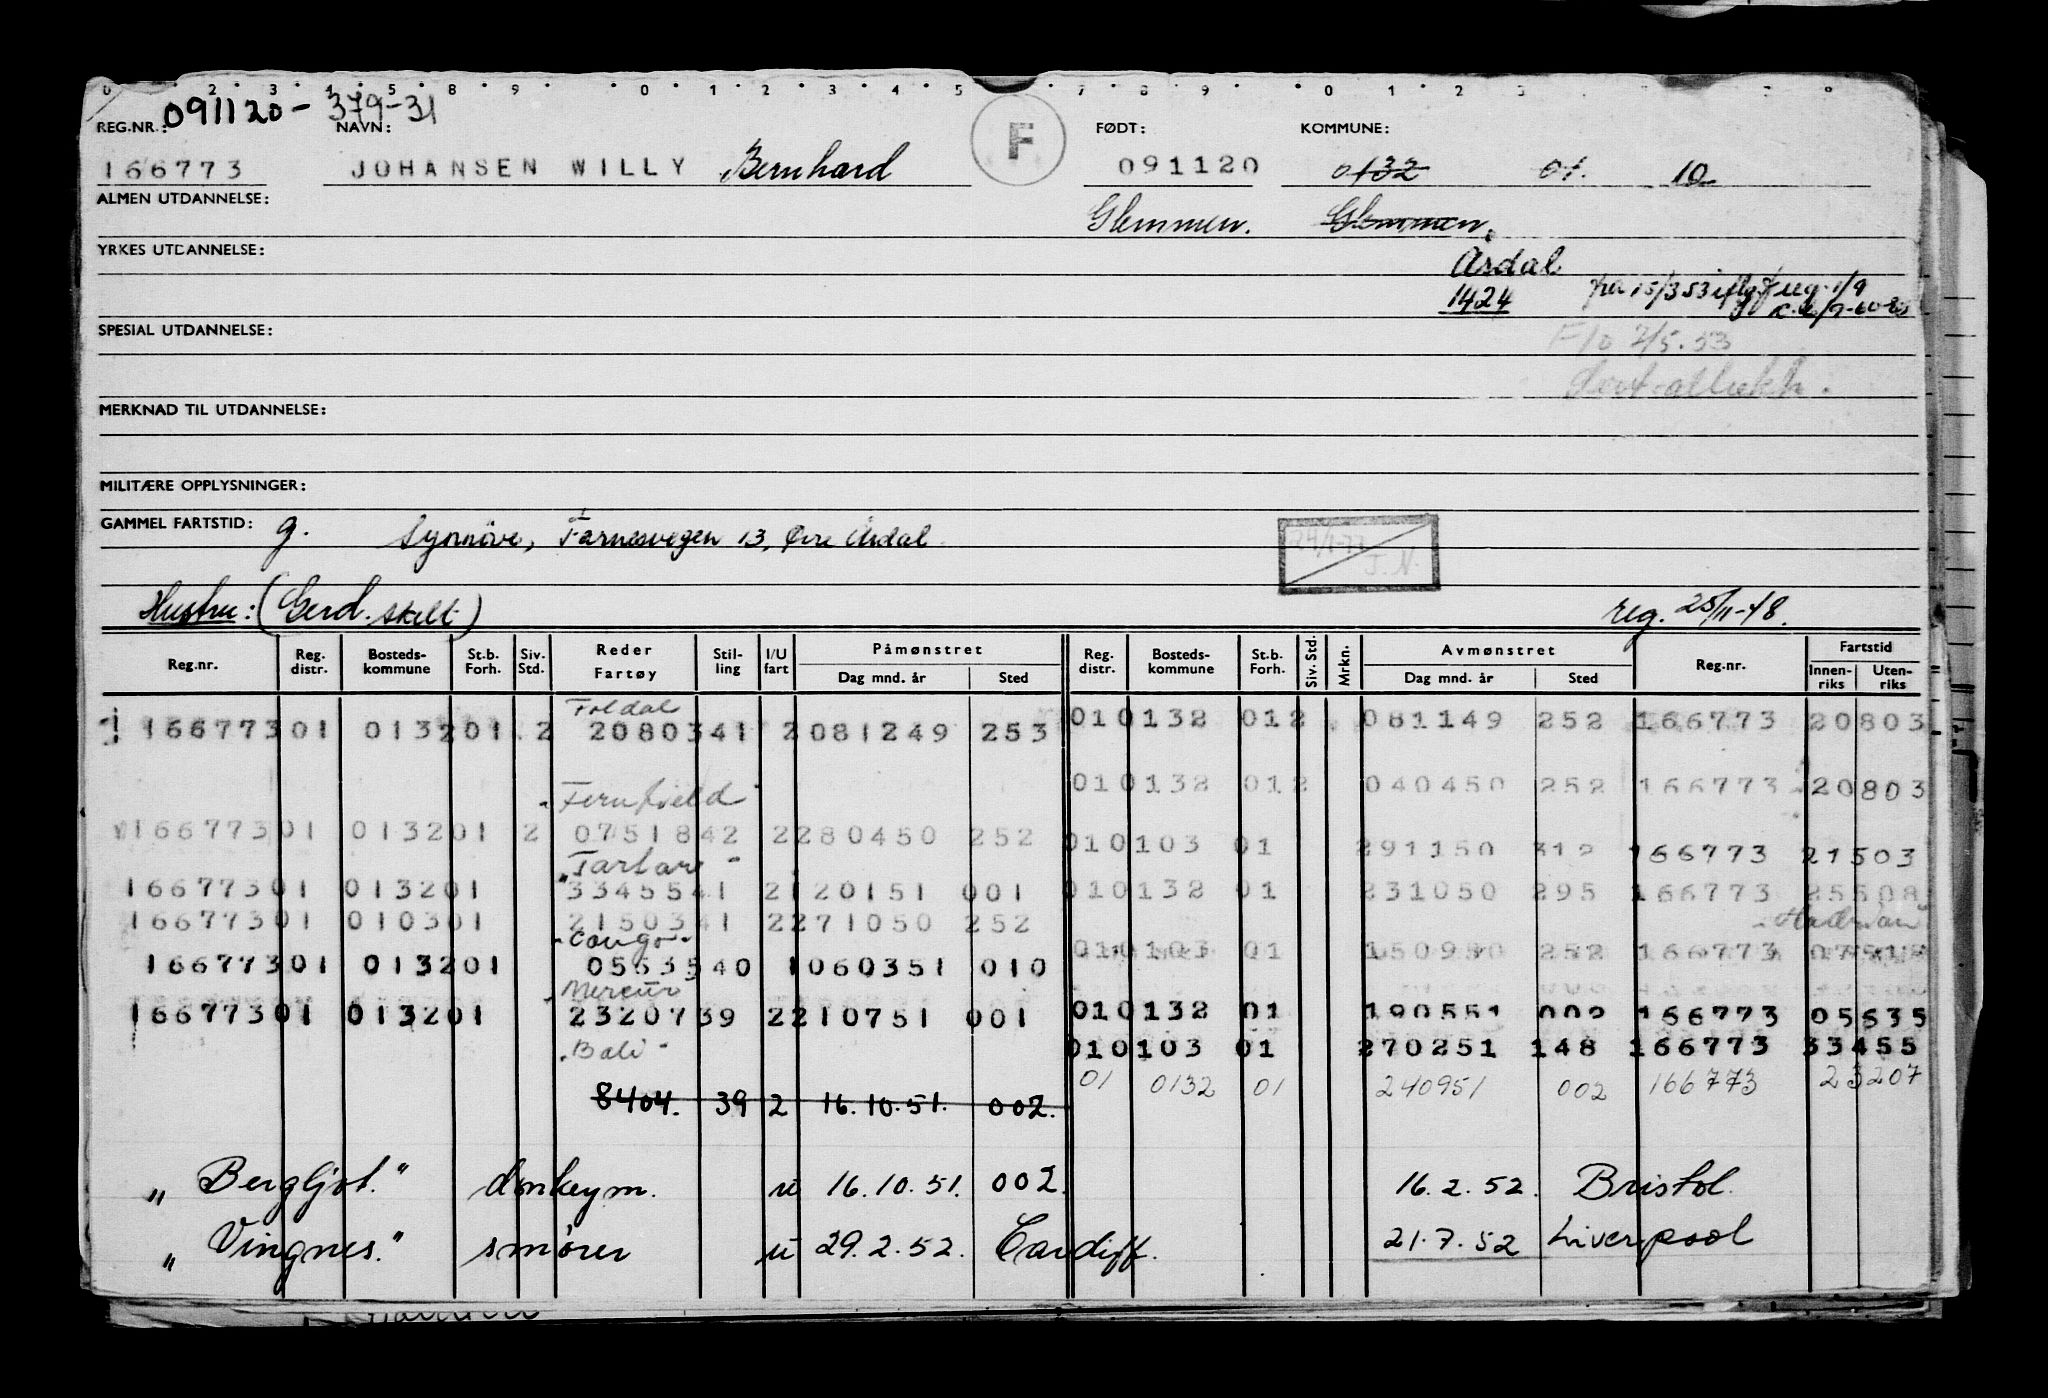 091120-379-31
REG.NR.: NAVN: F FØDT: KOMMUNE:
166773 JOHANSEN WILLY Bernhard 091120 0132 01. 10
ALMEN UTDANNELSE: Glemmen. Glemmen.
YRKES UTDANNELSE: Årdal
1424 fra 15/3 53 iflg. f reg. 1/9
SPESIAL UTDANNELSE: F/o 2/5.53
MERKNAD TIL UTDANNELSE:
MILITÆRE OPPLYSNINGER:
GAMMEL FARTSTID: g. Synnöve, Farnesvegen 13, Øvre Årdal
Hustru: (Gerd. skilt) reg. 25/11-48.
Reg.nr. Reg. distr. Bosteds-kommune St.b. Forh. Siv. Std. Reder Fartøy Stil-ling I/U fart Påmønstret Dag mnd. år Sted Reg. distr. Bosteds-kommune St.b. Forh. Siv. Std. Mrkn. Avmønstret Dag mnd. år Sted Reg.nr. Fartstid Innen-riks Uten-riks
Foldal
166773 01 0132 01 2 20803 41 2 081249 253 01 0132 01 2 081149 252 166773 20803
"Fernfield" 01 0132 01 2 040450 252 166773 20803
166773 01 0132 01 2 07518 42 2 280450 252 01 0103 01 291150 312 166773 21503
"Tartare"
166773 01 0132 01 33455 41 2 120151 001 01 0132 01 231050 295 166773 25508
166773 01 0103 01 21503 41 2 271050 252
"Congo" 01 0103 01 150950 252 166773 07518
166773 01 0132 01 05635 40 1 060351 010
"Mercur"
166773 01 0132 01 23207 39 2 210751 001 01 0132 01 190551 002 166773 05635
"Bali" 01 0103 01 270251 148 166773 33455
01 0132 01 240951 002 166773 23207
8404. 39 2 16.10.51. 002.
"Bergljot." donkeym. u 16.10.51. 002. 16.2.52. Bristol.
"Vingnes." smører u 29.2.52. Cardiff. 21.7.52 Liverpool